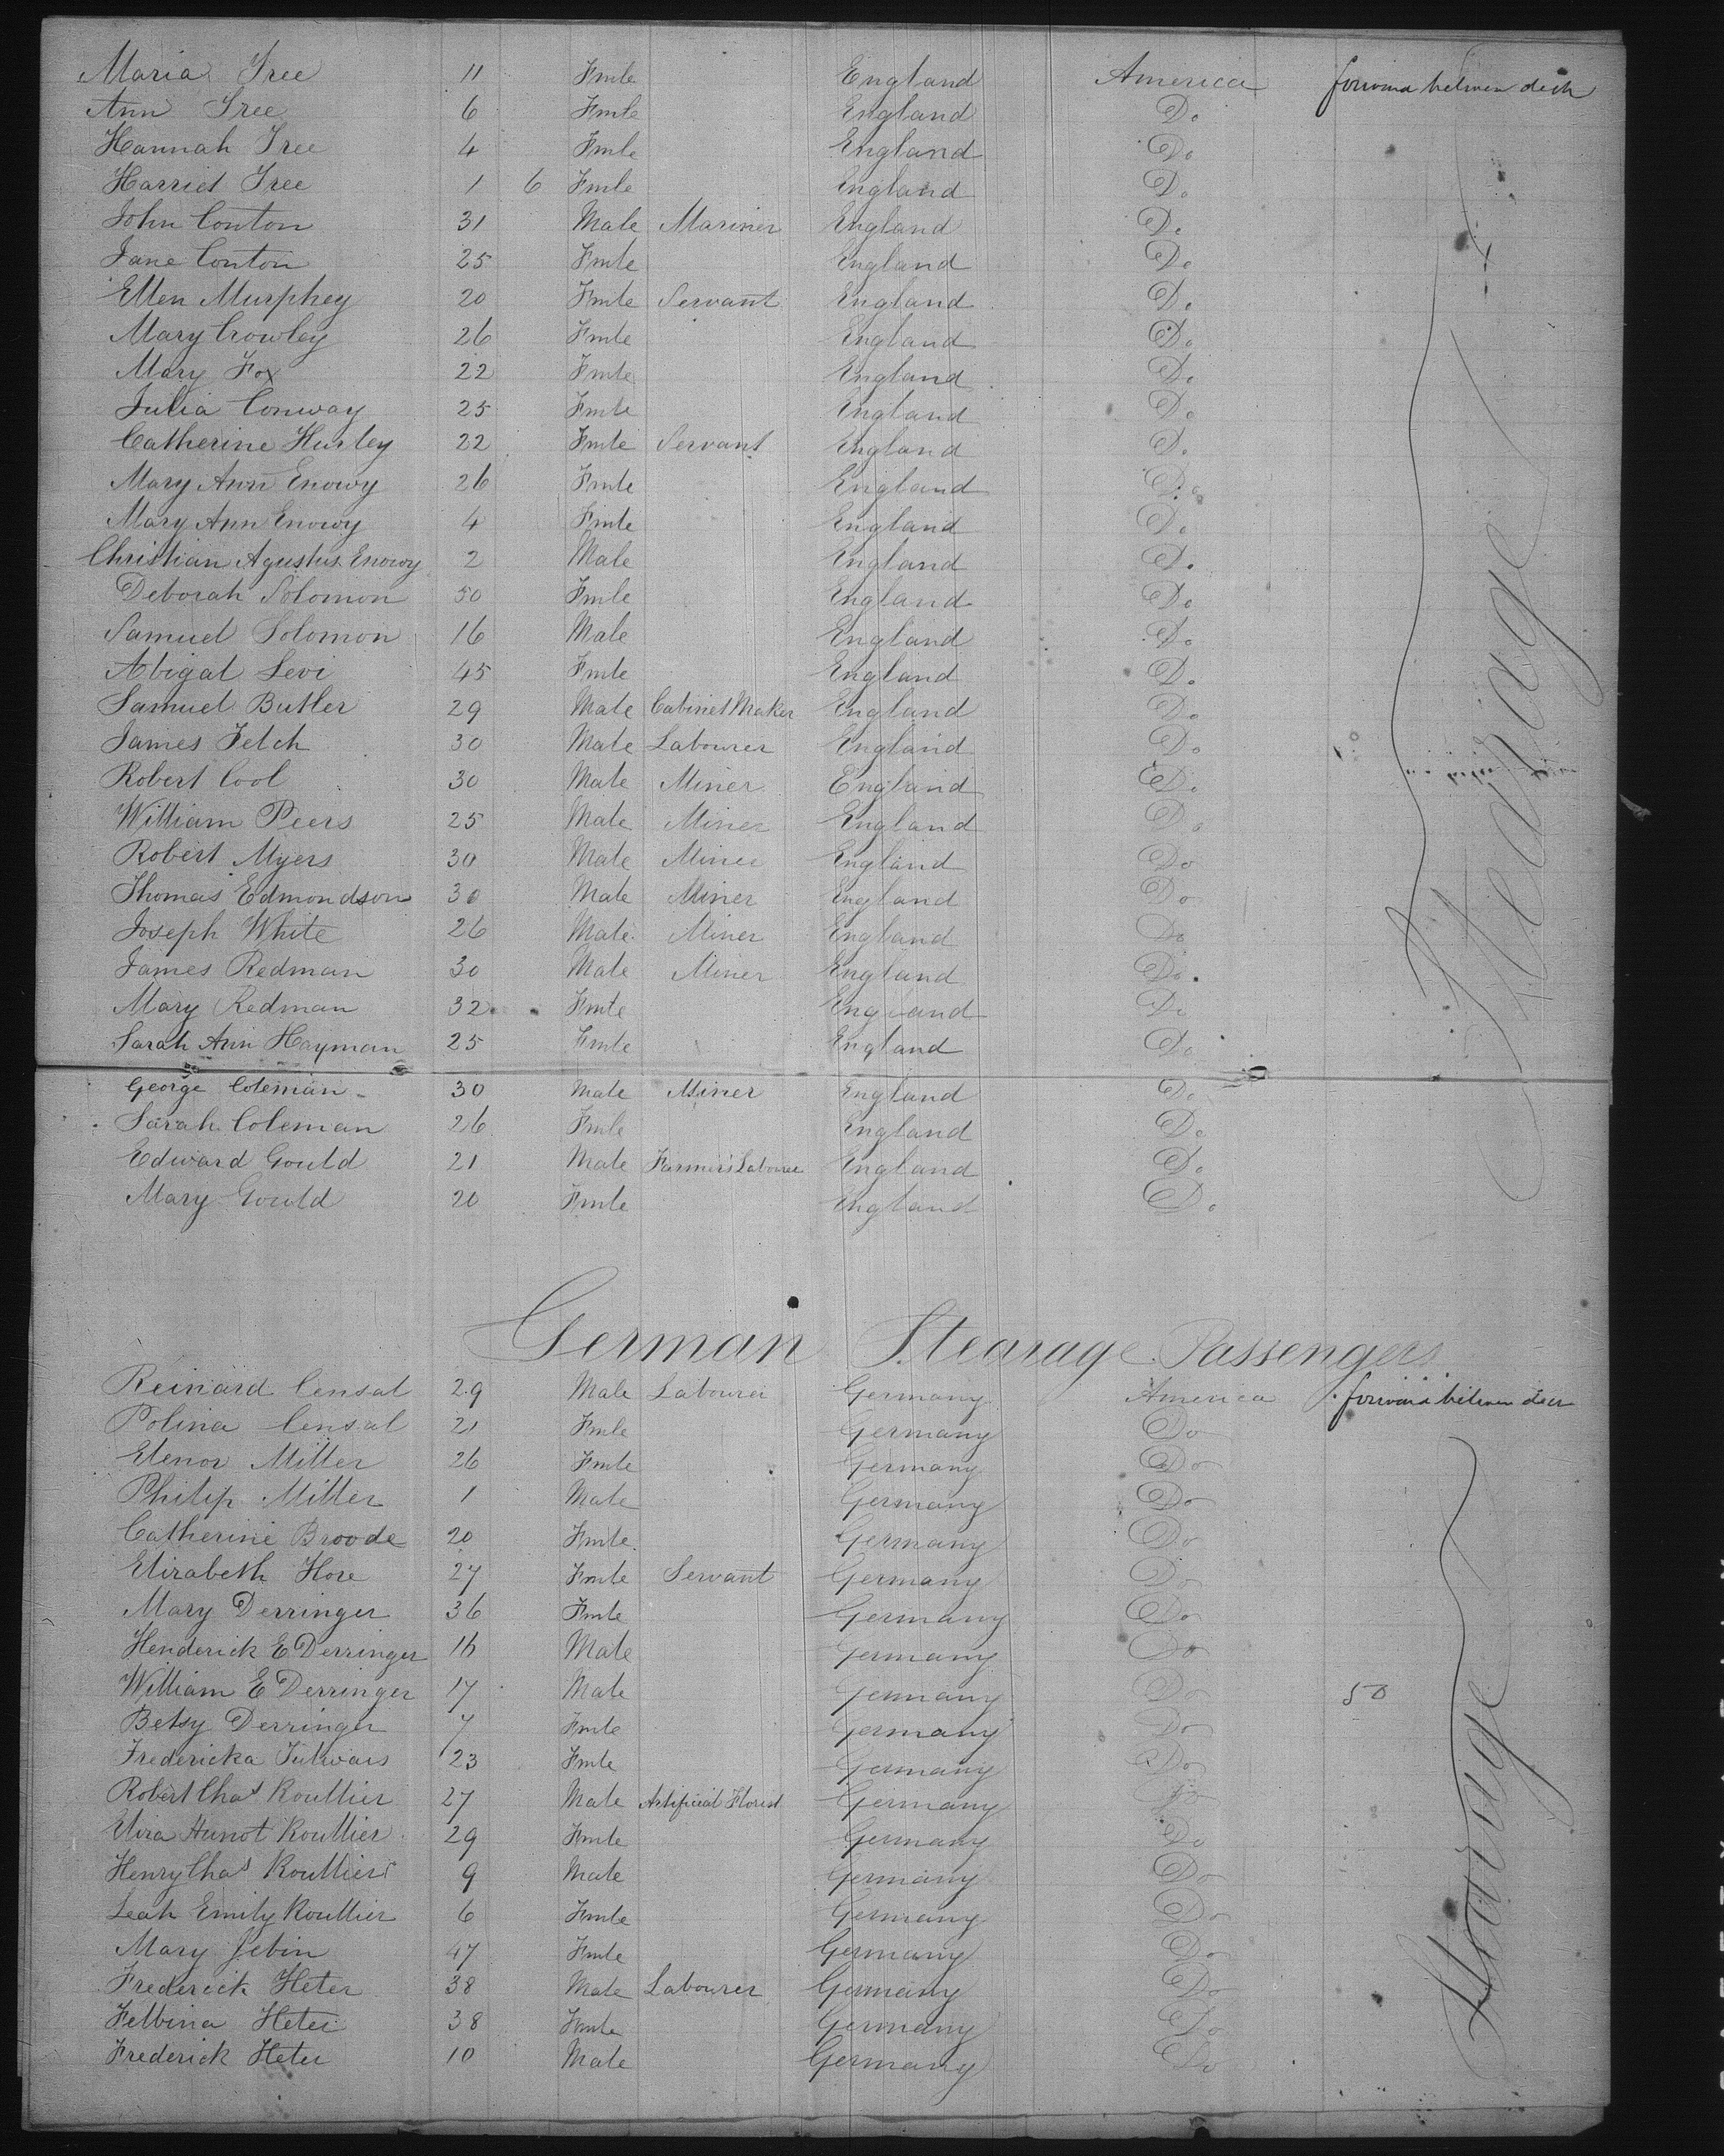 Maria Tree 11 Fmle England America forward between deck
Ann Tree 6 Fmle England Do
Hannah Tree 4 Fmle England Do
Harriet Tree 1 6 Fmle England Do
John Conton 31 Male Mariner England Do
Jane Conton 25 Fmle England Do
Ellen Murphey 20 Fmle Servant England Do
Mary Crowley 26 Fmle England Do
Mary Fox 22 Fmle England Do
Julia Conway 25 Fmle England Do
Catherine Hurley 22 Fmle Servant England Do
Mary Ann Enowy 26 Fmle England Do
Mary Ann Enowy 4 Fmle England Do
Christian Agustus Enowy 2 Male England Do
Deborah Solomon 50 Fmle England Do
Samuel Solomon 16 Male England Do
Abigal Levi 45 Fmle England Do
Samuel Butler 29 Male Cabinet Maker England Do
James Fetch 30 Male Labourer England Do
Robert Cool 30 Male Miner England Do
William Peers 25 Male Miner England Do
Robert Myers 30 Male Miner England Do
Thomas Edmondson 30 Male Miner England Do
Joseph White 26 Male Miner England Do
James Redman 30 Male Miner England Do
Mary Redman 32 Fmle England Do
Sarah Ann Hayman 25 Fmle England Do
George Coleman 30 Male Miner England Do
Sarah Coleman 26 Fmle England Do
Edward Gould 21 Male Farmers Labourer England Do
Mary Gould 20 Fmle England Do
Stearage
German Stearage Passengers
Reinard Censal 29 Male Labourer Germany America forward between deck
Polina Censal 21 Fmle Germany Do
Elenor Miller 26 Fmle Germany Do
Philip Miller 1 Male Germany Do
Catherine Broode 20 Fmle Germany Do
Elizabeth Hore 27 Fmle Servant Germany Do
Mary Derringer 36 Fmle Germany Do
Henderick E Derringer 16 Male Germany Do
William E Derringer 17 Male Germany Do 50
Betsy Derringer 7 Fmle Germany Do
Fredericka 23 Fmle Germany Do
Robert Chas Roullier 27 Male Artificial Florist Germany Do
Eliza Hunot Roullier 29 Fmle Germany Do
Henry Chas Roullier 9 Male Germany Do
Leah Emily Roullier 6 Fmle Germany Do
Mary 47 Fmle Germany Do
Frederick Heter 38 Male Labourer Germany Do
Felbina Heter 38 Fmle Germany Do
Frederick Heter 10 Male Germany Do
Stearage